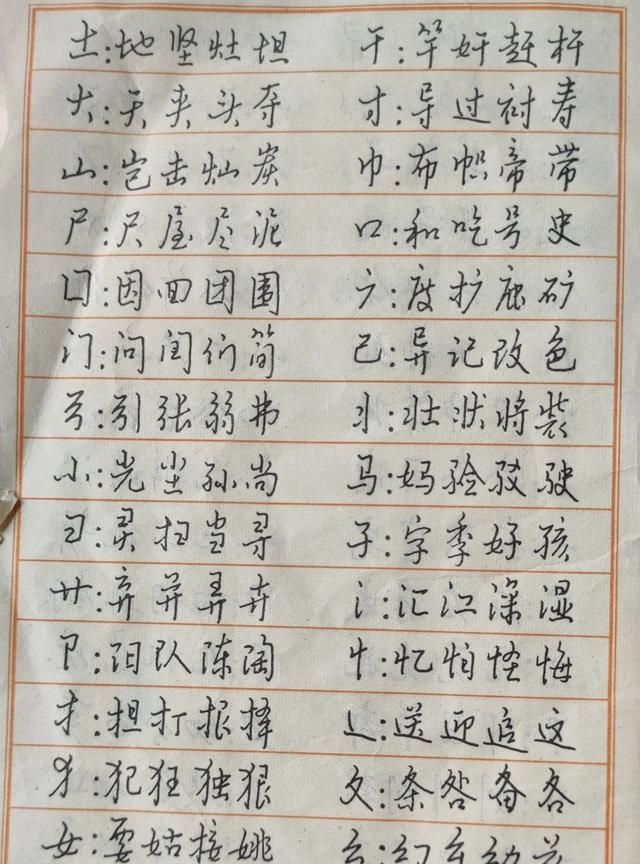 土:地坚灶坦 干:竿奸赶杆
大:天夹头夺 寸:导过衬寿
山:岂击灿炭 巾:布帜帝带
尸:尺屋尽泥 口:和吃号史
囗:因回团围 广:度扩鹿矿
门:问闰们简 己:异记改色
弓:引张弱弗 丬:壮状将装
小:光尘孙尚 马:妈验驳驶
彐:灵扫当寻 子:字季好孩
廾:弃开弄卉 氵:汇江深湿
阝:阳队陈陶 忄:忆怕怪悔
扌:担打根择 辶:送迎追这
犭:犯狂独狠 夂:条咎备各
女:要姑接姚